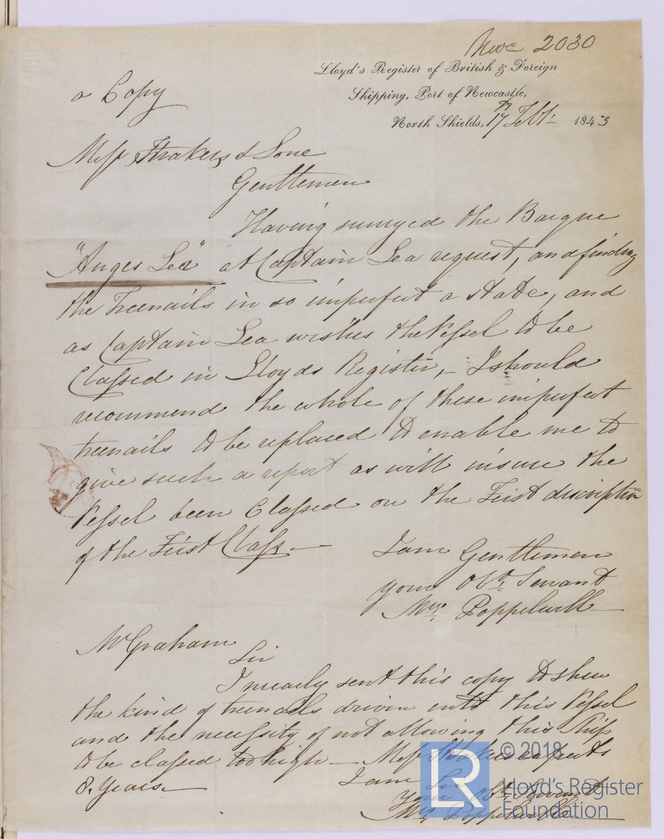 Nwc 2030
Lloyd's Register of British & Foreign
Shipping, Port of Newcastle,
North Shields, 17 Feby 1843
a Copy
Messrs Strakers & Love
Gentlemen
Having surveyed the Barque
"Anges Lea" at Captain Lea request, and finding
the Treenails in so imperfect a state, and
as Captain Lea wishes the Vessel to be
Classed in Lloyds Register, I should
recommend the whole of these imperfect
treenails to be replaced to enable me to
give such a report as will insure the
Vessel been Classed on the First discription
of the First Class.
I am Gentlemen
your Obt. Servant
Wm. Poppelwell
Mr Graham
Sir
I mearly sent this copy to shew
the kind of treenails driven into this Vessel
and the necessity of not allowing this Ship
to be classed too high. Messrs
8. Years.
I am Sir
Your Obt Servant
Wm Poppelwell
LR
© 2018
Lloyd's Register
Foundation